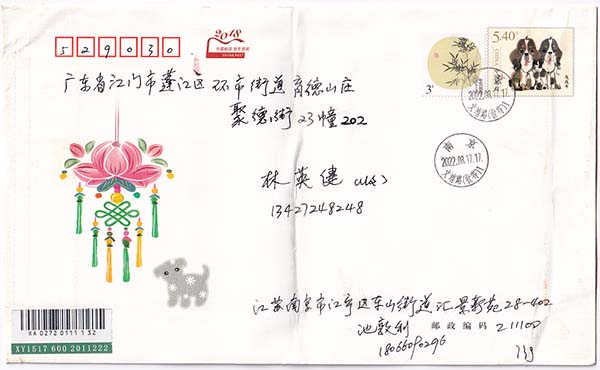 529030
2018
中国邮政 贺年有奖
CHINA POST
5.40元
CHINA
3
2022.08.17.17.
南京
2022.08.17.17.
广东省江门市蓬江区环市街道育德山庄
聚德街23幢202
林英健(收)
13427248248
江苏南京市江宁区东山街道汇景新苑28-402
池敦利 邮政编码 211100
18066090296
13g
XA 0272 0111 1 32
XY1517 600 2011222